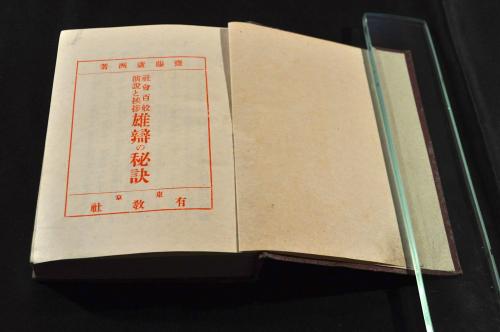 齋藤蘆西著
社會百般
演説と挨拶
雄辯の秘訣
東京
有教社